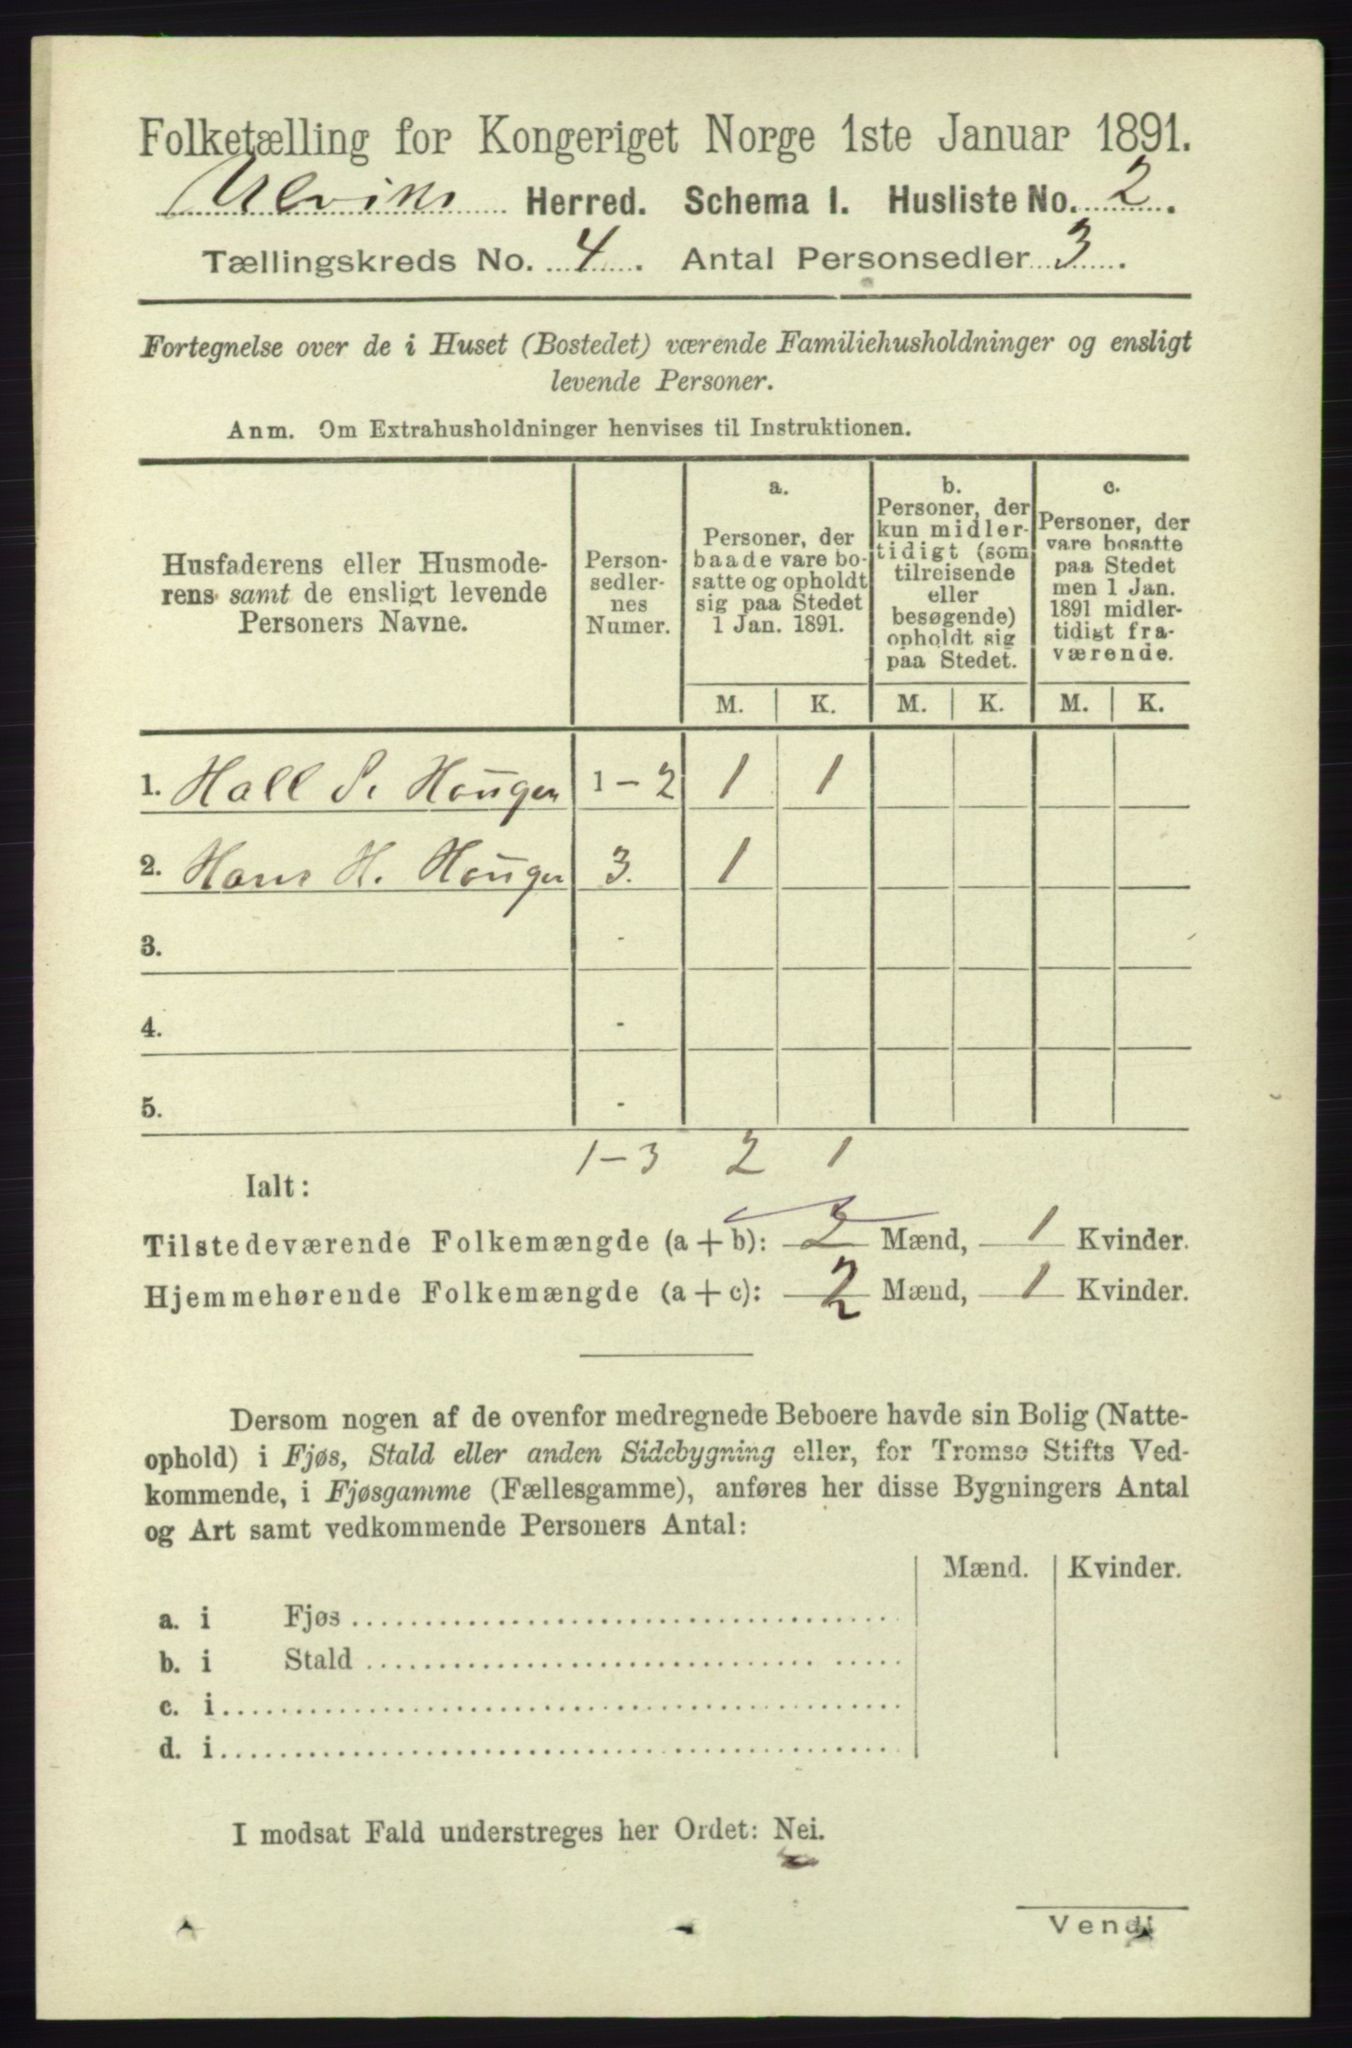 Folketælling for Kongeriget Norge 1ste Januar 1891.
Ulvik Herred. Schema I. Husliste No. 2.
Tællingskreds No. 4. Antal Personsedler 3.
Fortegnelse over de i Huset (Bostedet) værende Familiehusholdninger og ensligt
levende Personer.
Anm. Om Extrahusholdninger henvises til Instruktionen.
Husfaderens eller Husmode-
rens samt de ensligt levende
Personers Navne.
Person-
sedler-
nes
Numer.
a.
Personer, der
baade vare bo-
satte og opholdt
sig paa Stedet
1 Jan. 1891.
b.
Personer, der
kun midler-
tidigt (som
tilreisende
eller
besøgende)
opholdt sig
paa Stedet.
c.
Personer, der
vare bosatte
paa Stedet
men 1 Jan.
1891 midler-
tidigt fra-
værende.
M. K. M. K. M. K.
1. Hall S. Hougen 1-2 1 1
2. Hans H. Hougen 3. 1
3. -
4. -
5. -
1-3 2 1
Ialt:
Tilstedeværende Folkemængde (a+b): 2 Mænd, 1 Kvinder.
Hjemmehørende Folkemængde (a+c): 2 Mænd, 1 Kvinder.
Dersom nogen af de ovenfor medregnede Beboere havde sin Bolig (Natte-
ophold) i Fjøs, Stald eller anden Sidebygning eller, for Tromsø Stifts Ved-
kommende, i Fjøsgamme (Fællesgamme), anføres her disse Bygningers Antal
og Art samt vedkommende Personers Antal:
Mænd. Kvinder.
a. i Fjøs
b. i Stald
c. i
d. i
I modsat Fald understreges her Ordet: Nei.
Vend!